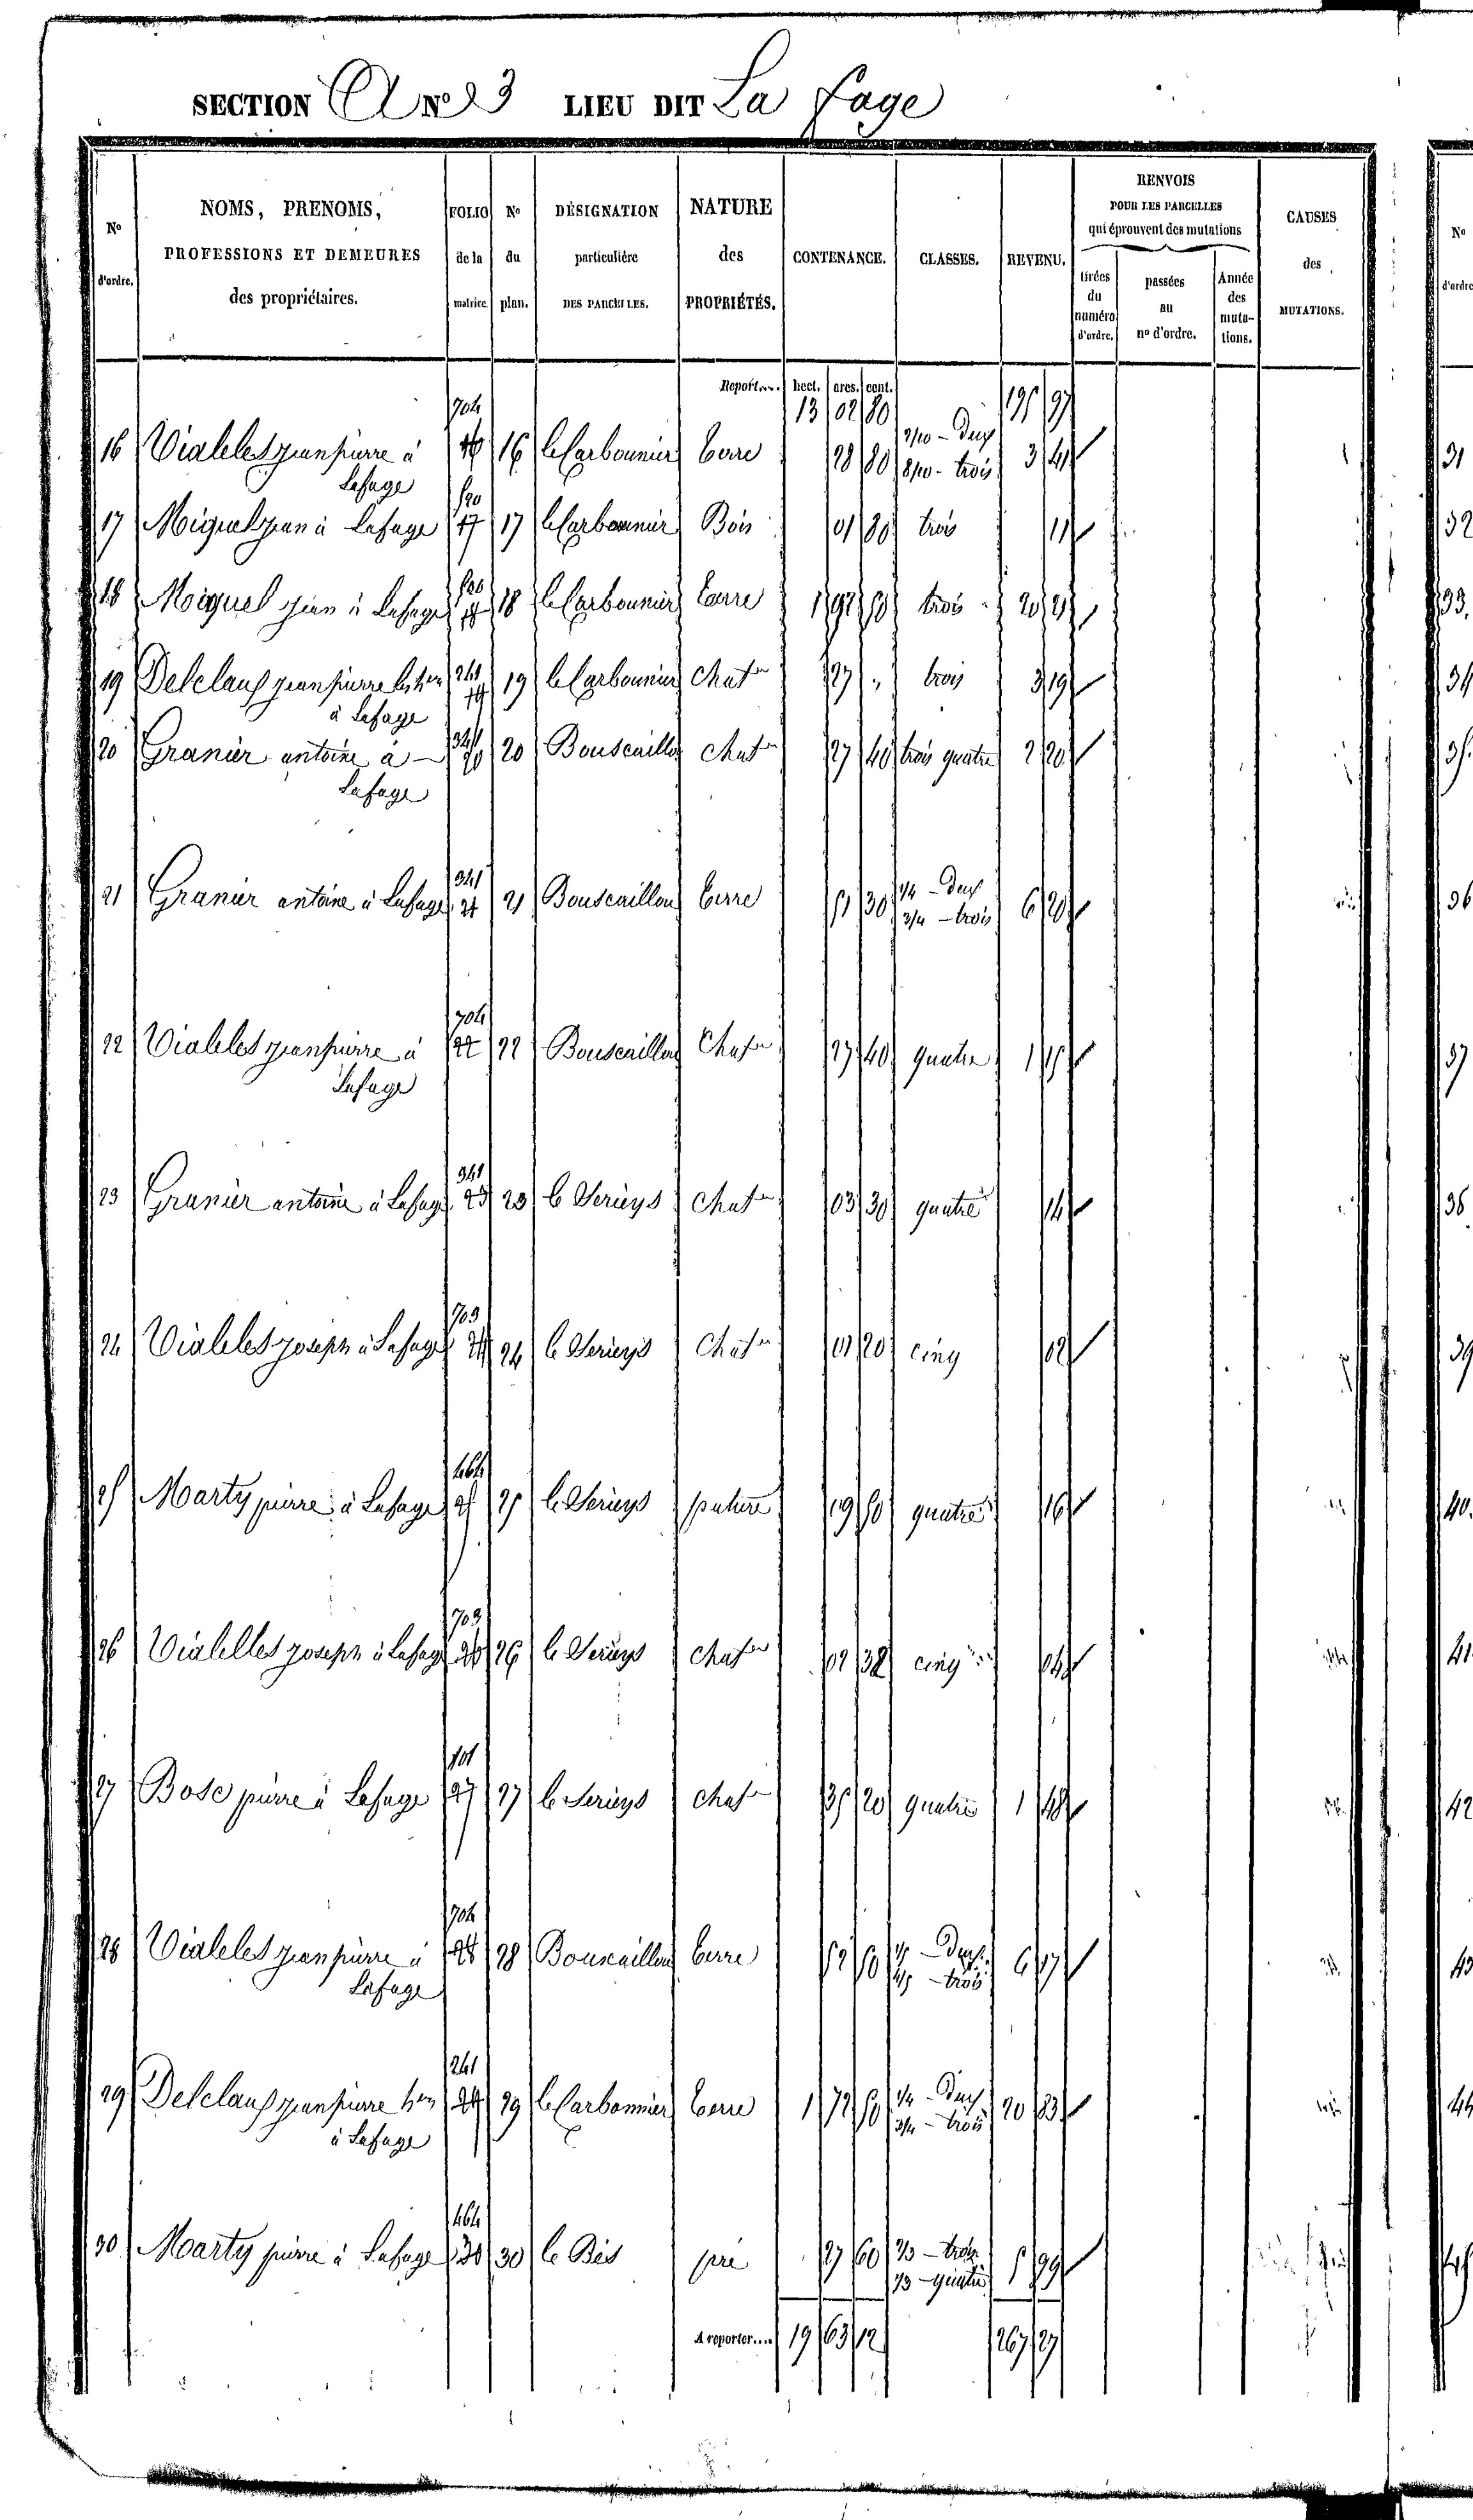 SECTION A N° 3 LIEU DIT La fage
N° d'ordre. | NOMS, PRENOMS, PROFESSIONS ET DEMEURES des propriétaires. | FOLIO de la matrice. | N° du plan. | DÉSIGNATION particulière DES PARCELLES. | NATURE des PROPRIÉTÉS. | CONTENANCE. | CLASSES. | REVENU. | RENVOIS POUR LES PARCELLES qui éprouvent des mutations | tirées du numéro d'ordre. | passées au n° d'ordre. | Année des mutations. | CAUSES des MUTATIONS.
Report.... hect. ares. cent.
13 02 80 195 97
704
16 Vialeles jean pierre à 16 16 le Carbounier terre 28 80 2/10 - Deux 8/10 - trois 3 41
Lafage
17 Miquel jean à Lafage 17 17 le Carbounier Bois 01 80 trois 11
18 Miquel jean à Lafage 18 18 le Carbounier terre 1 92 trois 20 21
19 Delclaux jean pierre 241 19 19 le Carbounier Chat 27 " trois 3 19
à Lafage
20 Granier antoine à 341 20 20 Bouscaillou chat 27 40 trois quatre 2 20
Lafage
341
21 Granier antoine à Lafage 21 21 Bouscaillou terre 51 30 1/4 - Deux 3/4 - trois 6 20
704
22 Vialeles jean pierre à 22 22 Bouscaillou Chat 27 40 quatre 1 15
Lafage
341
23 Granier antoine à Lafage 23 23 le Serieys chat 03 30 quatre 14
703
24 Vialeles joseph à Lafage 24 24 le Serieys Chat 01 20 cinq 02
464
25 Marty pierre à Lafage 25 25 le Serieys pature 19 quatre 16
703
26 Vialelles joseph à Lafage 26 26 le Serieys chat 02 32 cinq 04
101
27 Bosc pierre à Lafage 27 27 le Serieys chat 35 20 quatre 1 48
704
28 Vialeles jean pierre à 28 28 Bouscaillou terre 52 1/5 - Deux 4/5 - trois 6 17
Lafage
241
29 Delclaux jean pierre 29 29 le Carbonnier terre 1 72 1/4 - Deux 3/4 - trois 20 83
à Lafage
464
30 Marty pierre à Lafage 30 30 le Bès pré 27 60 - trois 1/3 - quatre 5 99
A reporter.... 19 63 12 267 27
N° d'ordre
31
32
33.
34
35.
36
37
38
39
40.
41.
42
43
44
45